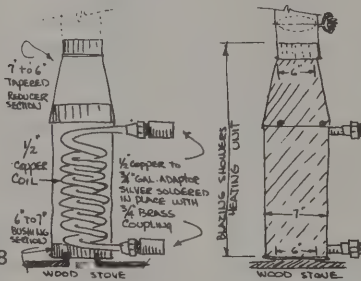 7" TO 6"
TAPERED
REDUCER
SECTION
1/2"
COPPER
COIL
6" TO 7"
BUSHING
SECTION
8
WOOD STOVE
1/2 COPPER TO
3/4" GAL. ADAPTOR
SILVER SOLDERED
IN PLACE WITH
3/4" BRASS
COUPLING
BLAZING SHOWERS
HEATING UNIT
6
7"
6
WOOD STOVE